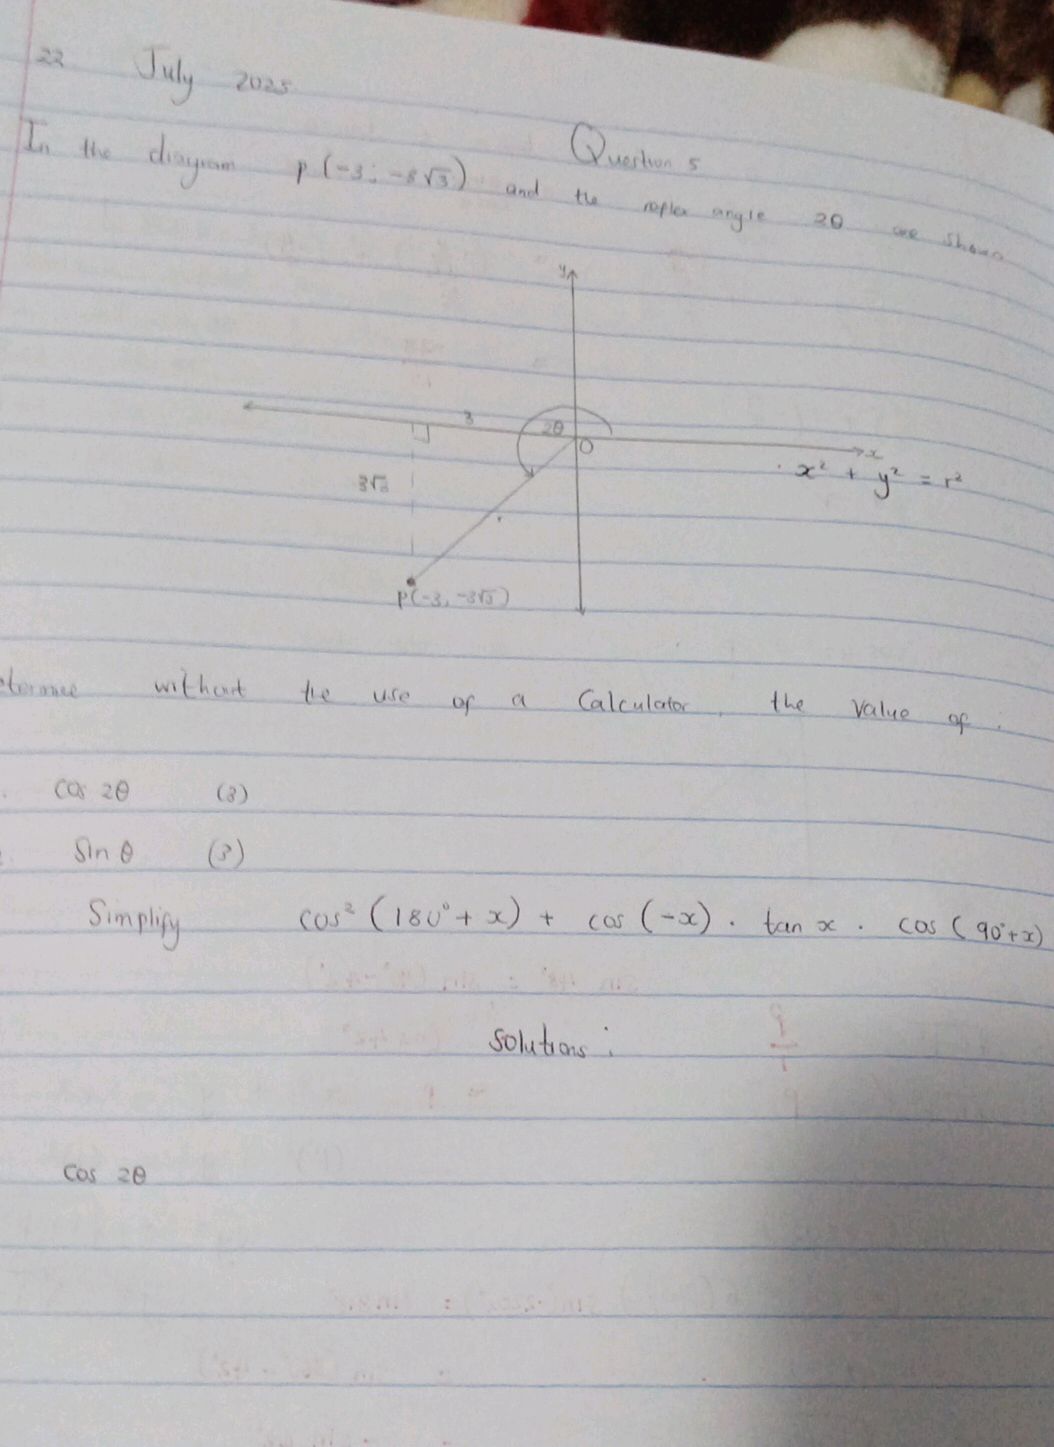 22 July 2025
Question 5
In the diagram P(-3; -3√3) and the reflex angle 2θ are shown
y
3
2θ
O
x
x² + y² = r²
3√3
P(-3, -3√3)
without the use of a Calculator, the value of :
cos 2θ (3)
Sin θ (3)
Simplify cos² (180° + x) + cos (-x) . tan x . cos (90°+x)
Solutions :
cos 2θ